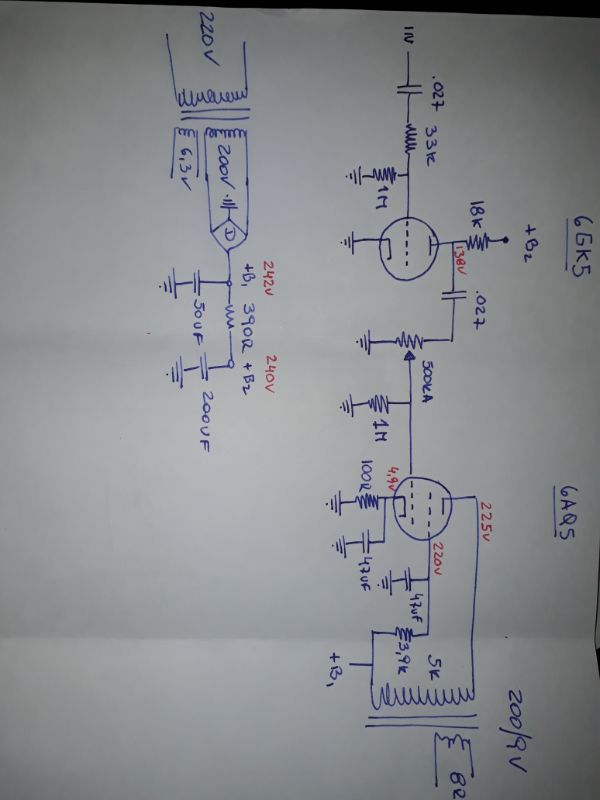 6GK5
6AQ5
200/9V
+B2
18K
138V
.027
IN
.027
33K
1M
500KA
1M
4,9V
100R
47UF
225V
220V
47UF
3,9K
5K
+B1
8R
220V
200V
6,3V
242V
+B1
50UF
390R
240V
+B2
200UF